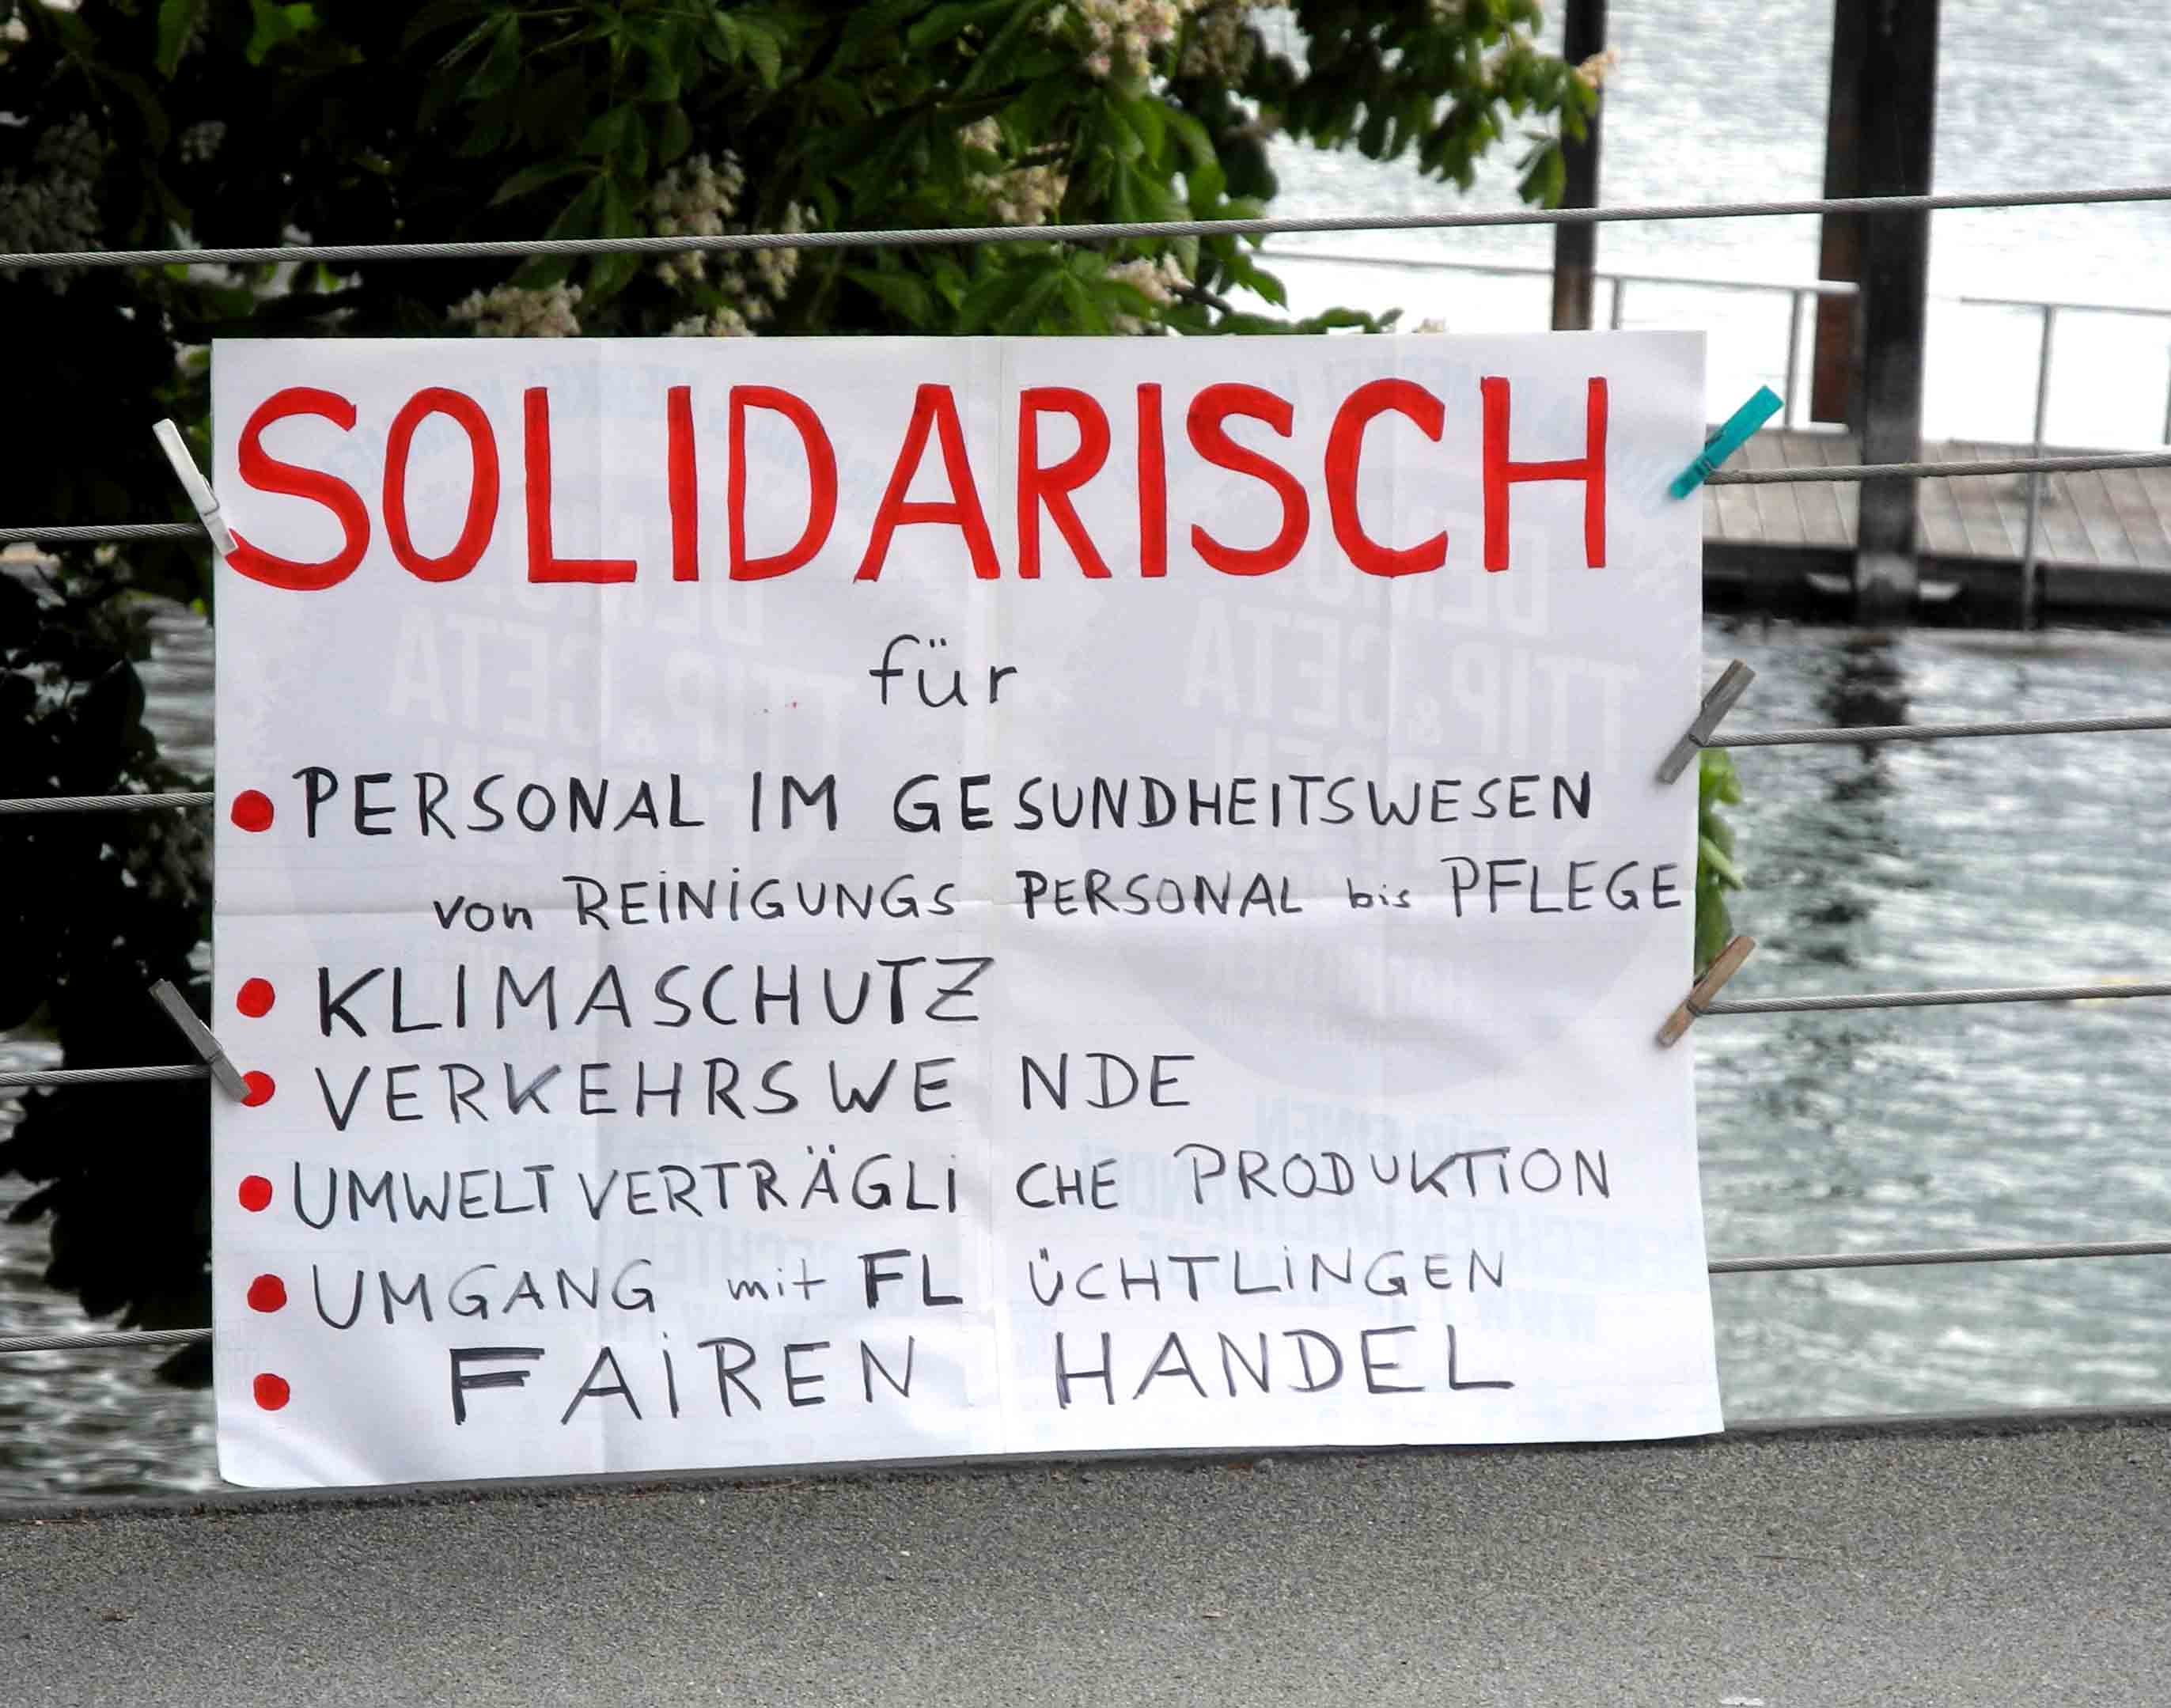 SOLIDARISCH
für
• PERSONAL IM GESUNDHEITSWESEN
von REINIGUNGS PERSONAL bis PFLEGE
• KLIMASCHUTZ
• VERKEHRSWE NDE
• UMWELTVERTRÄGLI CHE PRODUKTION
• UMGANG mit FL ÜCHTLINGEN
• FAIREN HANDEL